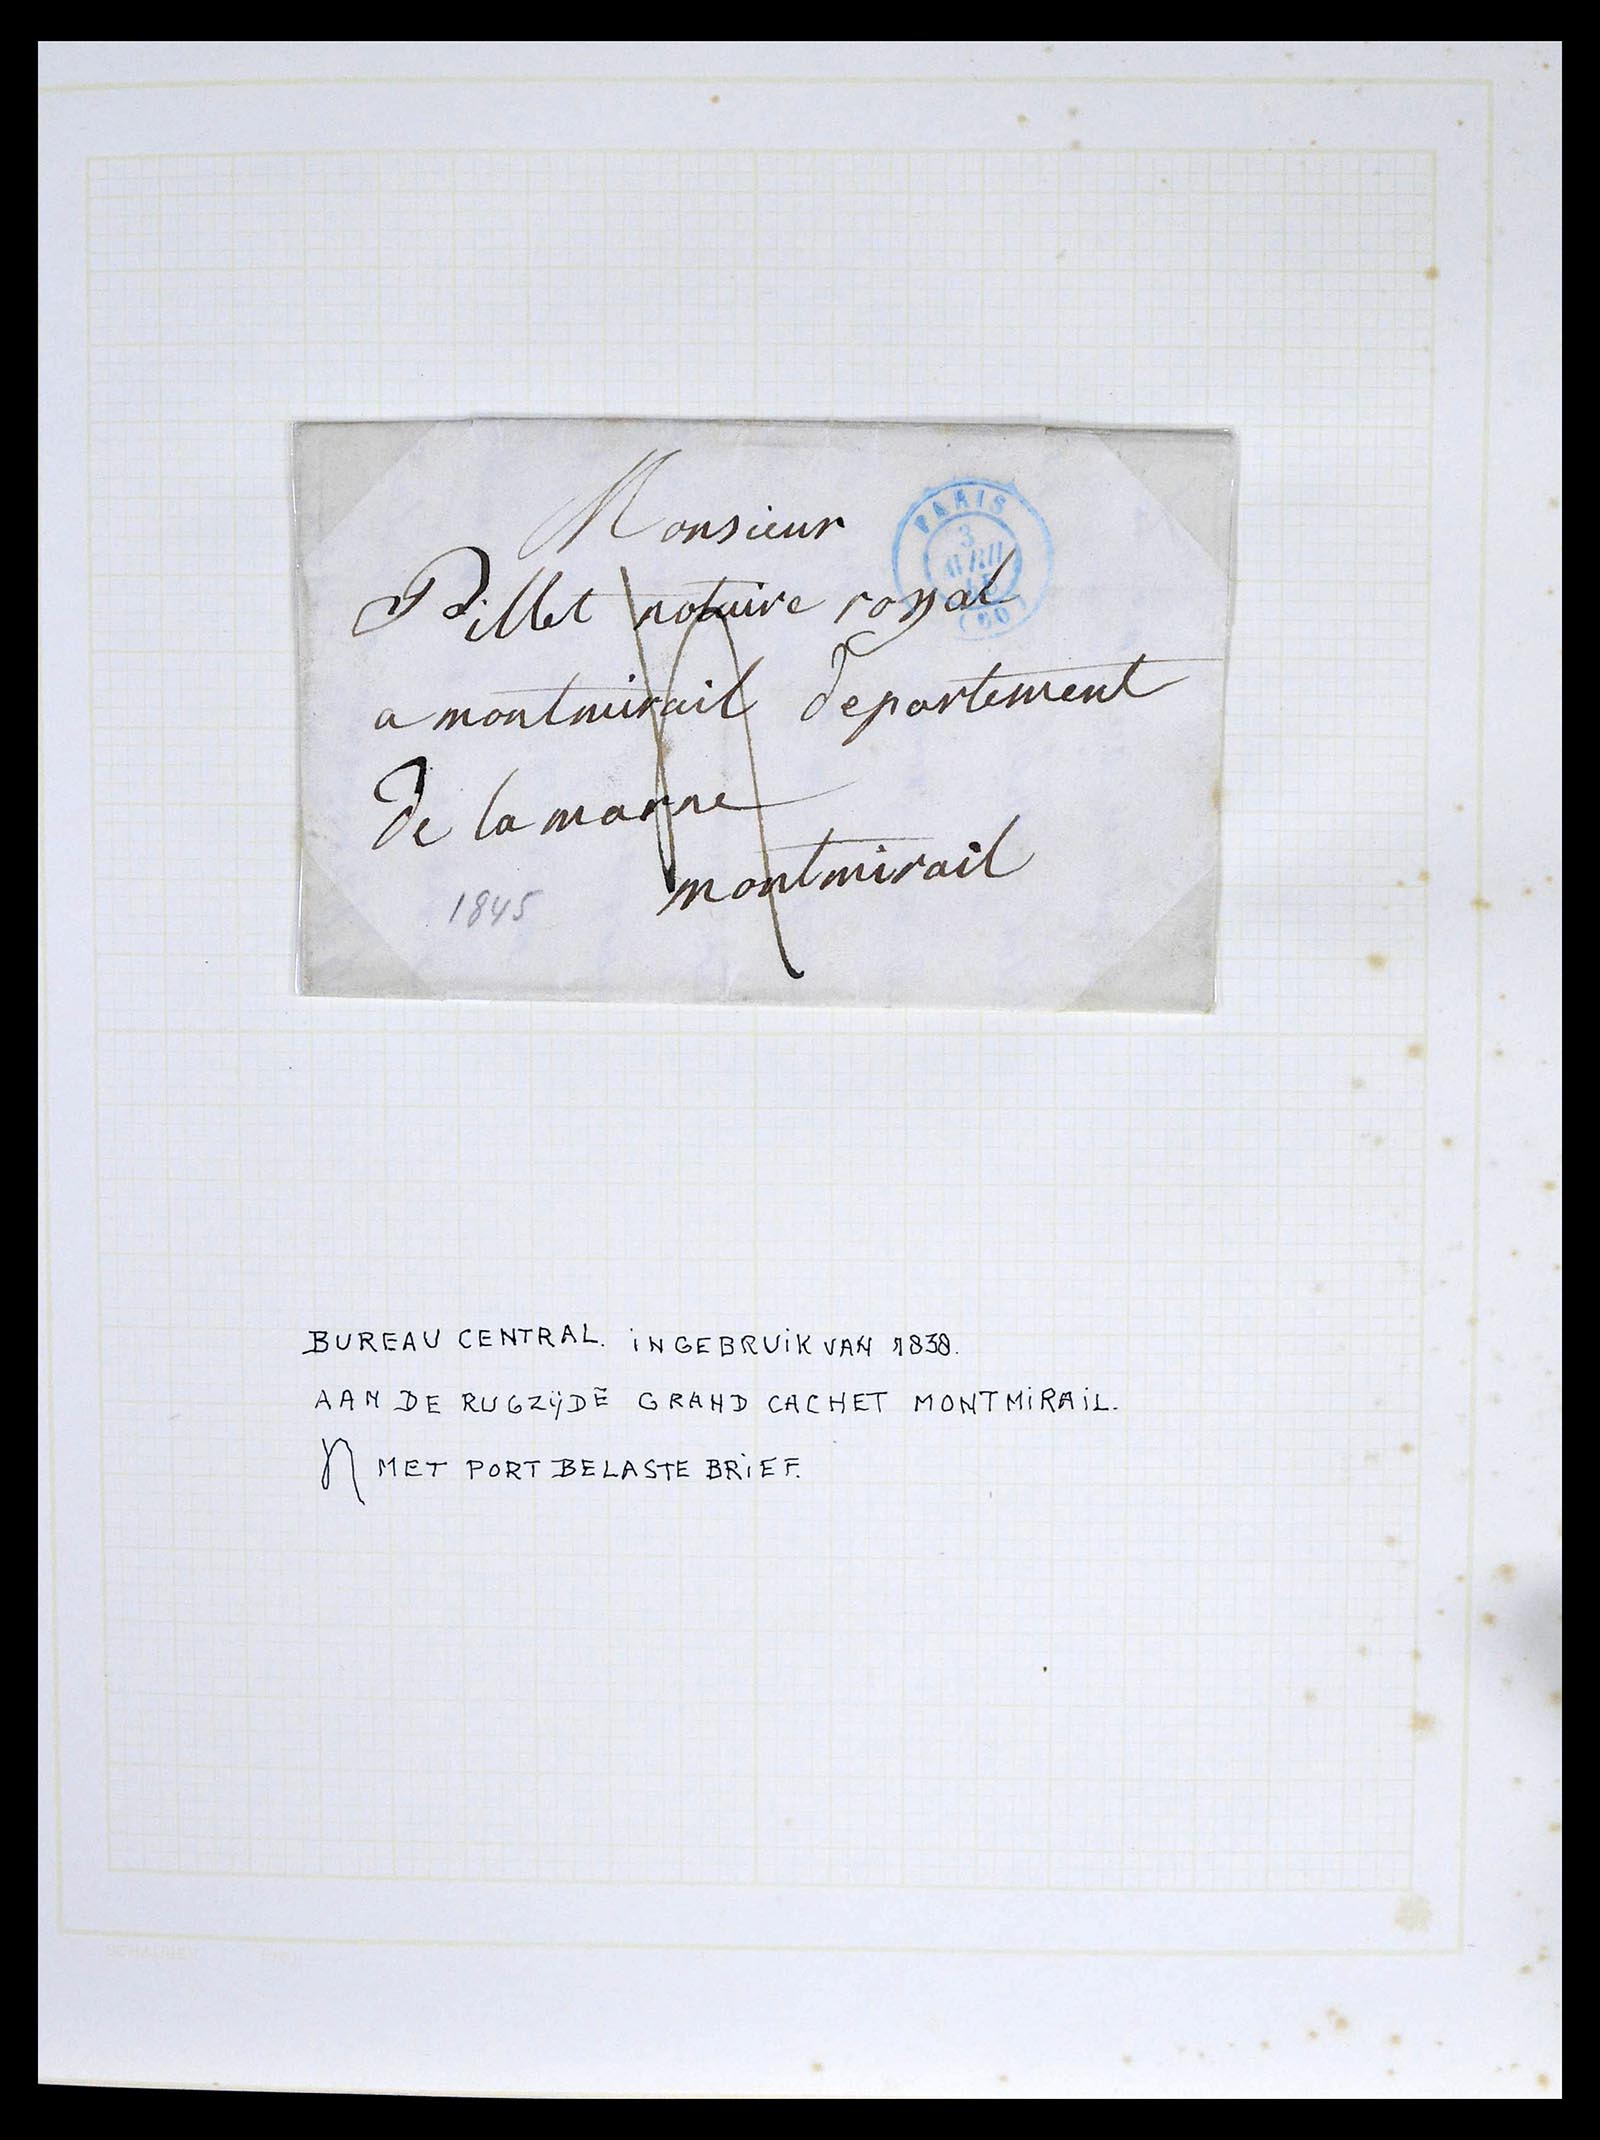 Monsieur
PARIS
3
AVRIL
45
(60)
Pillet notaire royal
a montmirail departement
de la marne
montmirail
1845
BUREAU CENTRAL. iN GEBRUiK VAN 1838.
AAN DE RUGZIJDE GRAND CACHET MONTMiRAiL.
MET PORT BELASTE BRiEF.